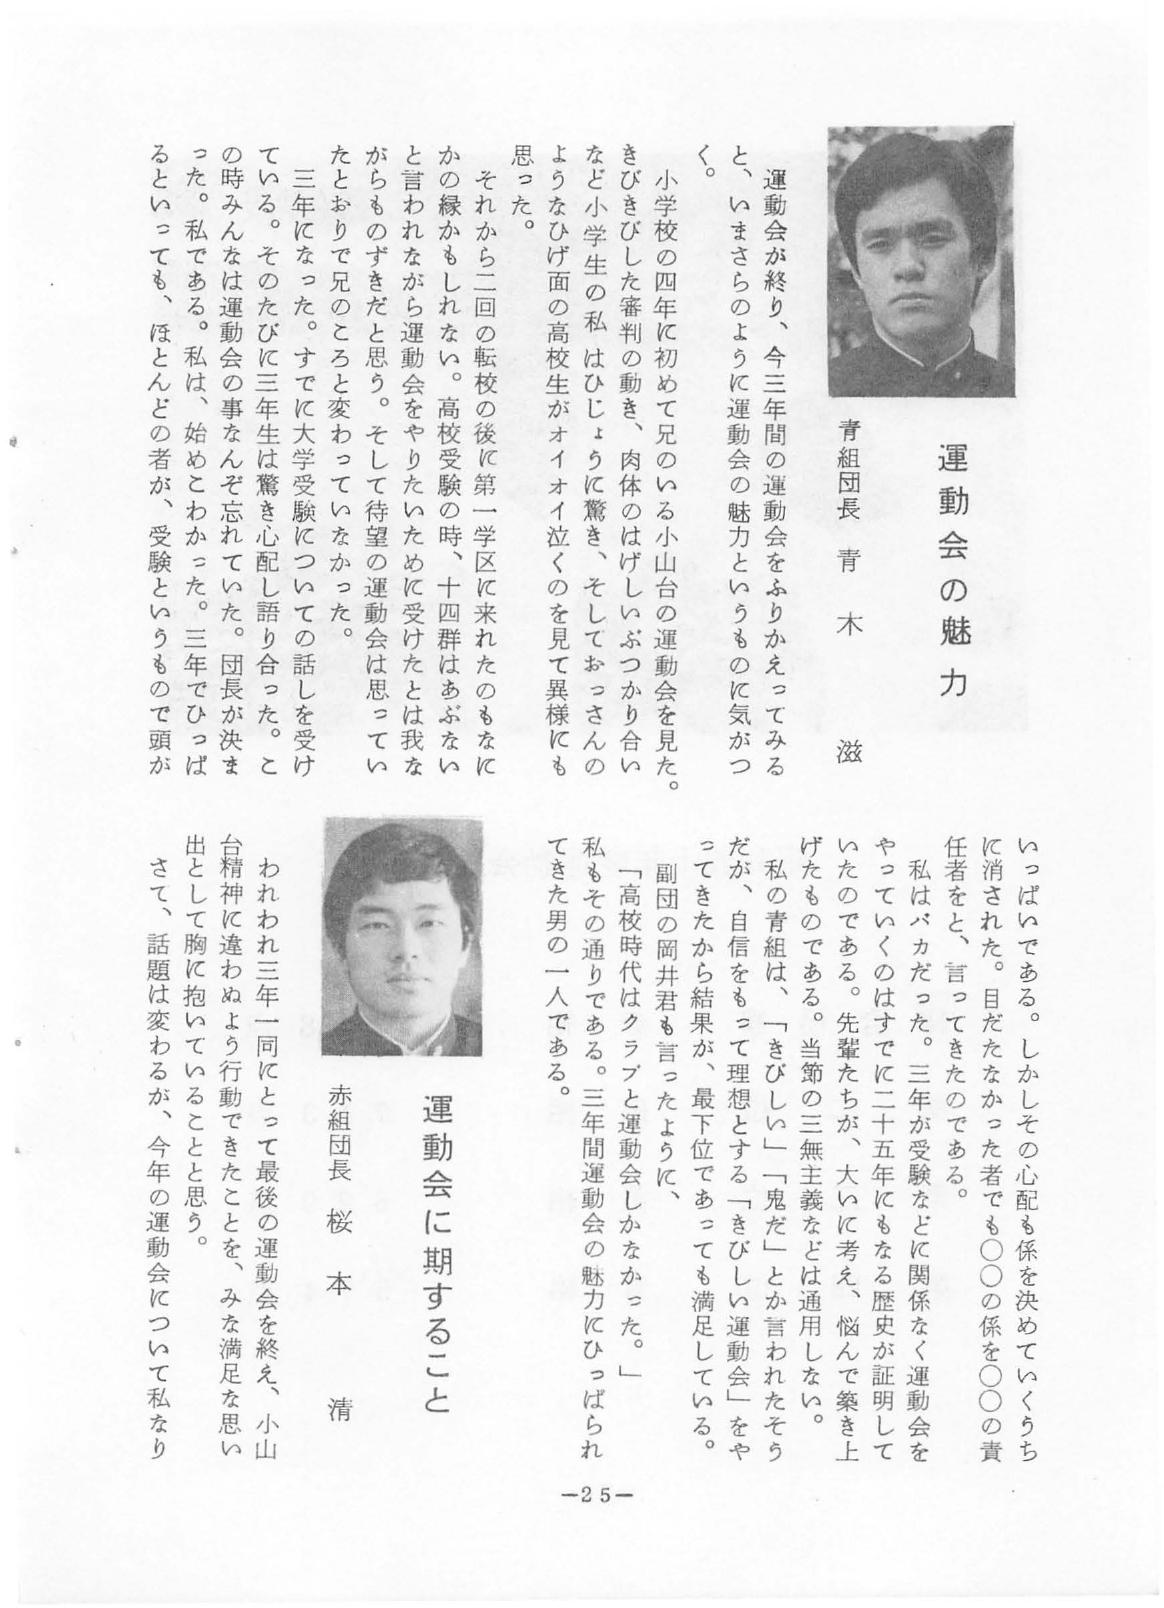 運動会の魅力
青組団長 青木 滋
運動会が終り、今三年間の運動会をふりかえってみる
と、いまさらのように運動会の魅力というものに気がつ
く。
小学校の四年に初めて兄のいる小山台の運動会を見た。
きびきびした審判の動き、肉体のはげしいぶつかり合い
など小学生の私はひじょうに驚き、そしておっさんの
ようなひげ面の高校生がオイオイ泣くのを見て異様にも
思った。
それから二回の転校の後に第一学区に来れたのもなに
かの縁かもしれない。高校受験の時、十四群はあぶない
と言われながら運動会をやりたいために受けたとは我な
がらものずきだと思う。そして待望の運動会は思ってい
たとおりで兄のころと変わっていなかった。
三年になった。すでに大学受験についての話しを受け
ている。そのたびに三年生は驚き心配し語り合った。こ
の時みんなは運動会の事なんぞ忘れていた。団長が決ま
った。私である。私は、始めこわかった。三年でひっぱ
るといっても、ほとんどの者が、受験というもので頭が
いっぱいである。しかしその心配も係を決めていくうち
に消された。目だたなかった者でも〇〇の係を〇〇の責
任者をと、言ってきたのである。
私はバカだった。三年が受験などに関係なく運動会を
やっていくのはすでに二十五年にもなる歴史が証明して
いたのである。先輩たちが、大いに考え、悩んで築き上
げたものである。当節の三無主義などは通用しない。
私の青組は、「きびしい」「鬼だ」とか言われたそう
だが、自信をもって理想とする「きびしい運動会」をや
ってきたから結果が、最下位であっても満足している。
副団の岡井君も言ったように、
「高校時代はクラブと運動会しかなかった。」
私もその通りである。三年間運動会の魅力にひっぱられ
てきた男の一人である。
運動会に期すること
赤組団長 桜本 清
われわれ三年一同にとって最後の運動会を終え、小山
台精神に違わぬよう行動できたことを、みな満足な思い
出として胸に抱いていることと思う。
さて、話題は変わるが、今年の運動会について私なり
—25—